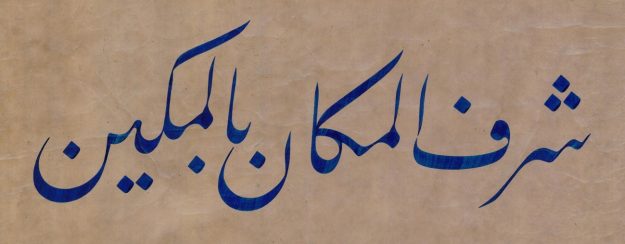 شرف المکان بالمکین